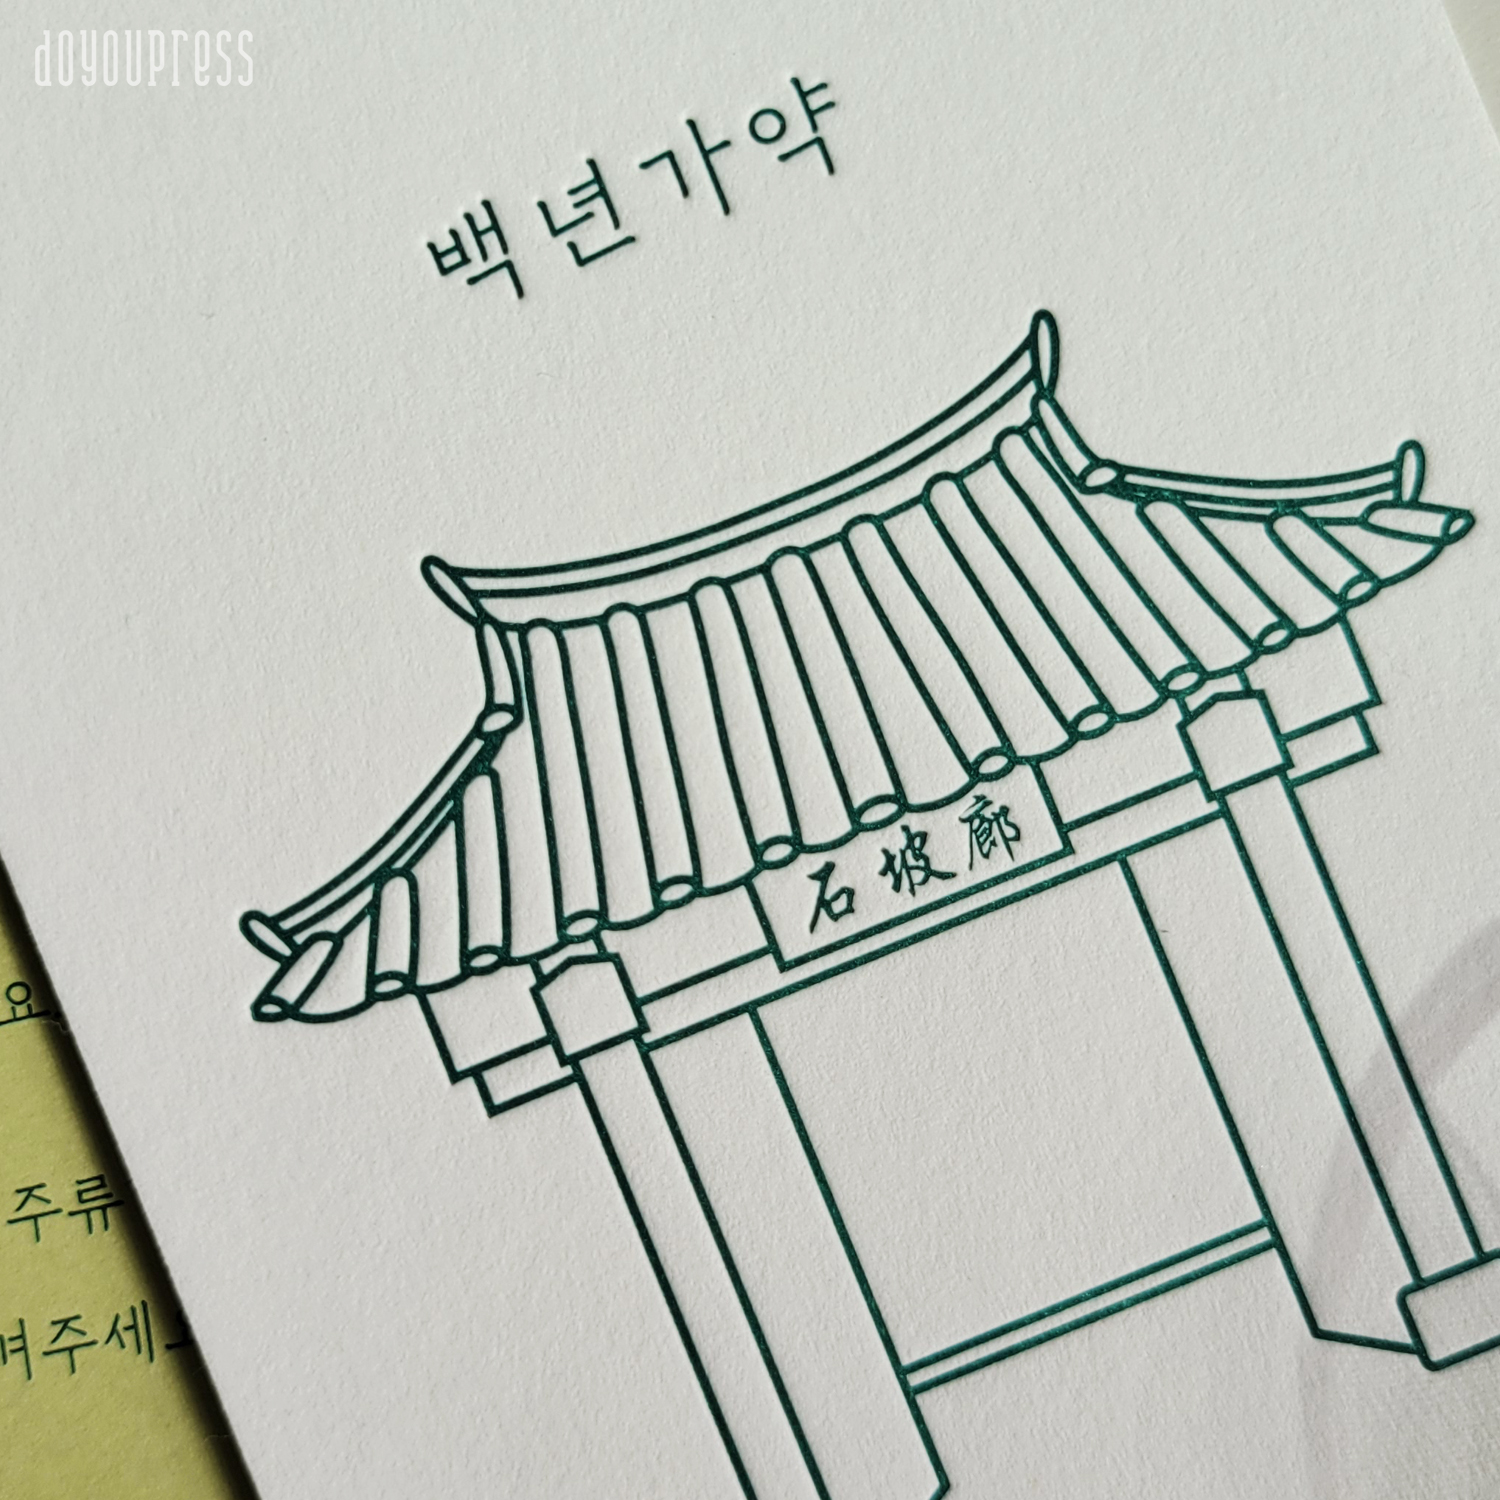 doyoupress
백년가약
石坡廊
요
주류
려주세요